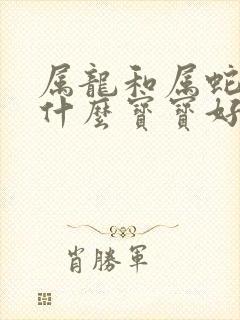 属龍和属蛇
什麼寶寶好
肖勝軍